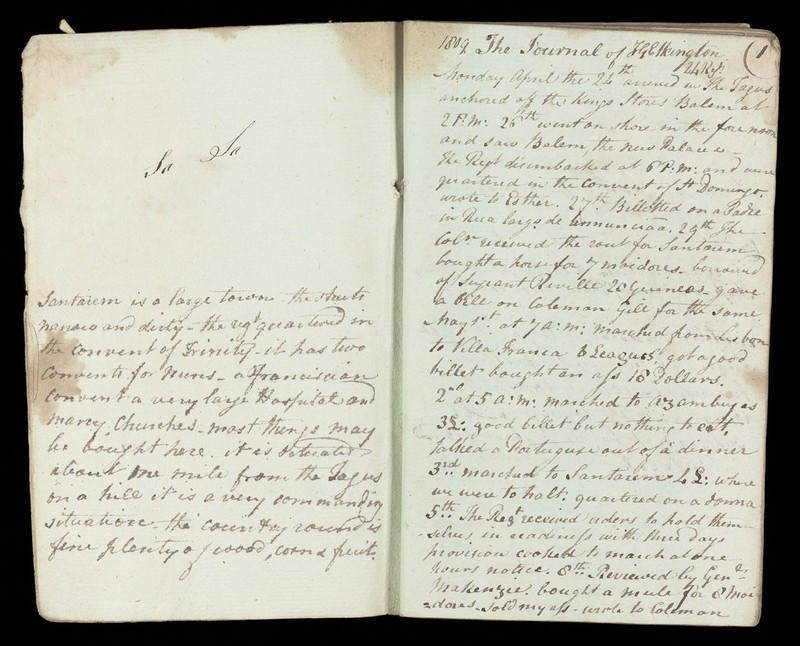 Sa Sa
Santarem is a large town the streets
narrow and dirty - the regt quartered in
the convent of Trinity - it has two
Convents for Nuns - a Franciscian
Convent a very large Hospital and
many Churches - most things may
be bought here. it is situated
about one mile from the Tagus
on a hill it is a very commanding
situation - the country round is
fine plenty of wood, corn & fruit.
1809 The Journal of JG Elkington (1
24 Regt
Monday April the 24th arrived in The Tagus
anchored off the Kings Stores Balem at
2 P.M: 26th went on shore in the fore noon
and saw Balem, the new Palace &-
The Regt disimbarked at 6 P.M: and were
quartered in the Convent of St Domingo.
wrote to Esther. 27th Billetted on a Padre
in Rua largo de Annunciáa. 29th The
Coln received the rout for Santarem
bought a horse for 7 moidores - borrowed
of Sergeant 20 Guineas gave
a Bill on Coleman Gill for the same
May 1st. at 7 A:M: marched from Lisbon
to Villa Franca 6 Leagues, got a good
billet bought an ass 18 Dollars.
2nd at 5 a:m: marched to Azambuyas
3L: good billet but nothing to eat,
talked a Portuguese out of a dinner
3rd marched to Santarem 4 L: where
we were to halt. quartered on a Donna
5th. The Regt received orders to hold them
-selves in readiness with three days
provision cooked to march at one
hours notice. 8th Reviewed by Genl
Makenzie. bought a mule for 8 Moi
=dores - sold my ass - wrote to Coleman